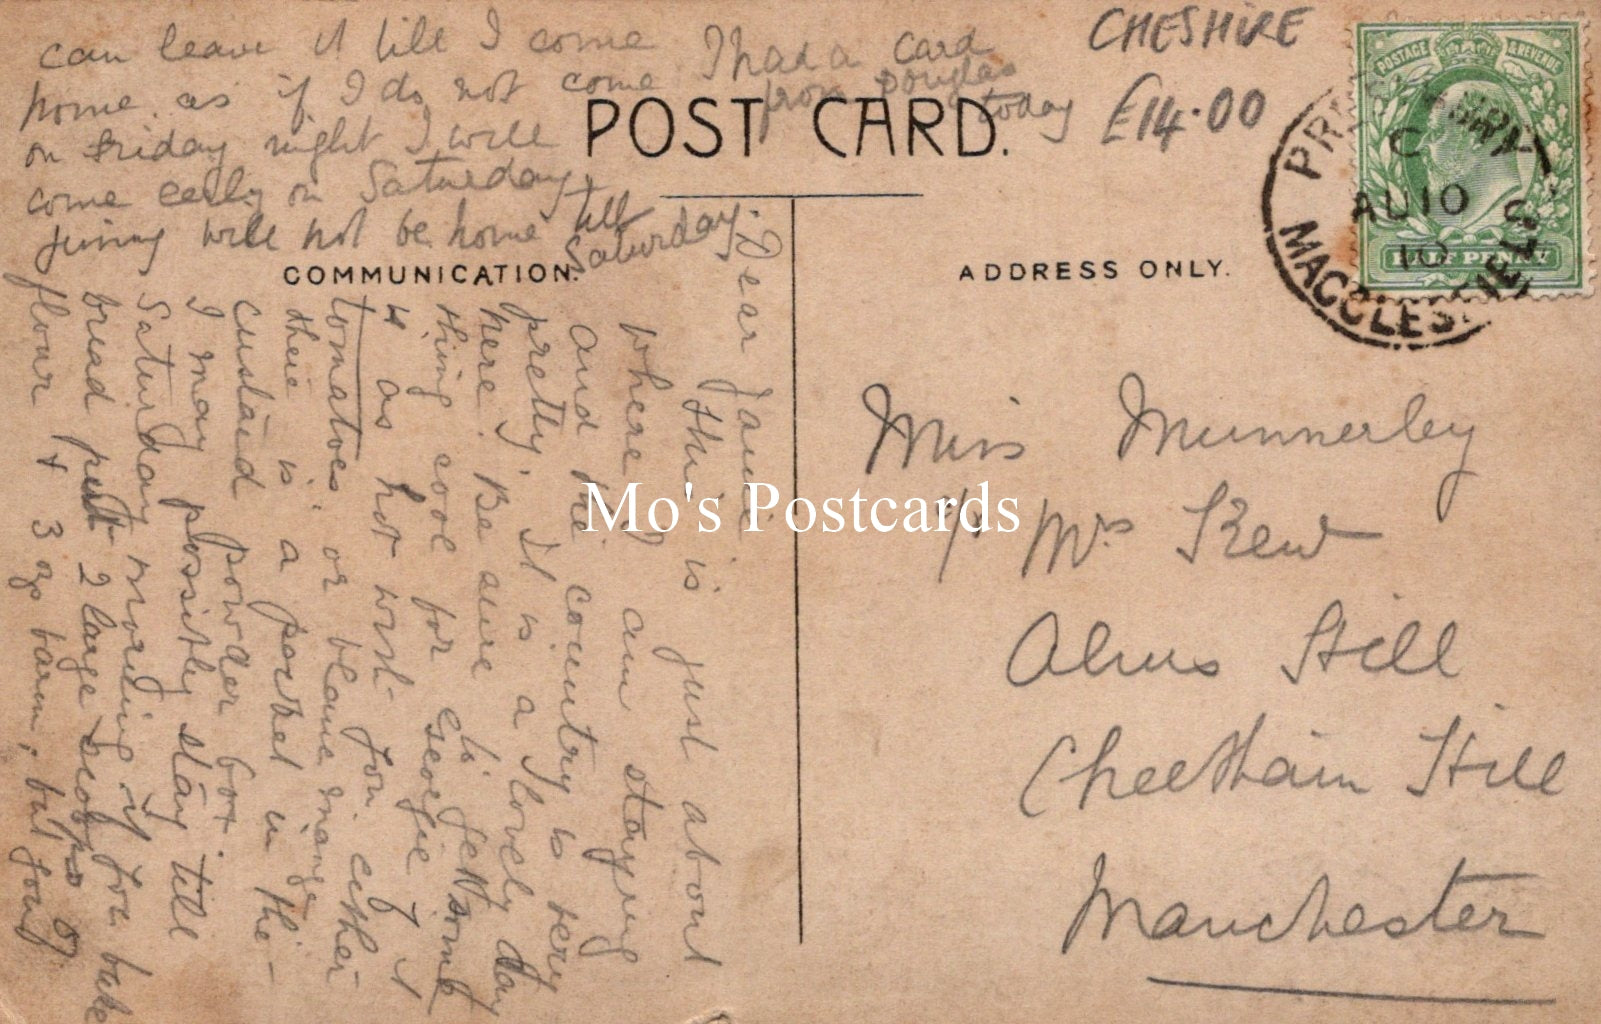 POST CARD.
COMMUNICATION.
ADDRESS ONLY.
CHESHIRE
£14.00
POSTAGE & REVENUE
HALF PENNY
C
AU 10
10
MACCLESFIELD
Miss Munnerley
c/o Mrs Kew
Alms Hill
Cheetham Hill
Manchester
Dear Janie
This is just about
where I am staying
and the country is very
pretty. It is a lovely day
here. Be sure to get some
thing cool for Georgie if it
is as hot with you either
tomatoes or blanc mange
there is a packet in the
custard powder box.
I may possibly stay till
Saturday morning if you bake
bread put 2 large scoops of
flour & 3 ozs barm, but you
can leave it till I come
home as if I do not come
on Friday night I will
come early on Saturday,
Jinny will not be home till
Saturday.
I had a card
from Douglas
today
Mo's Postcards